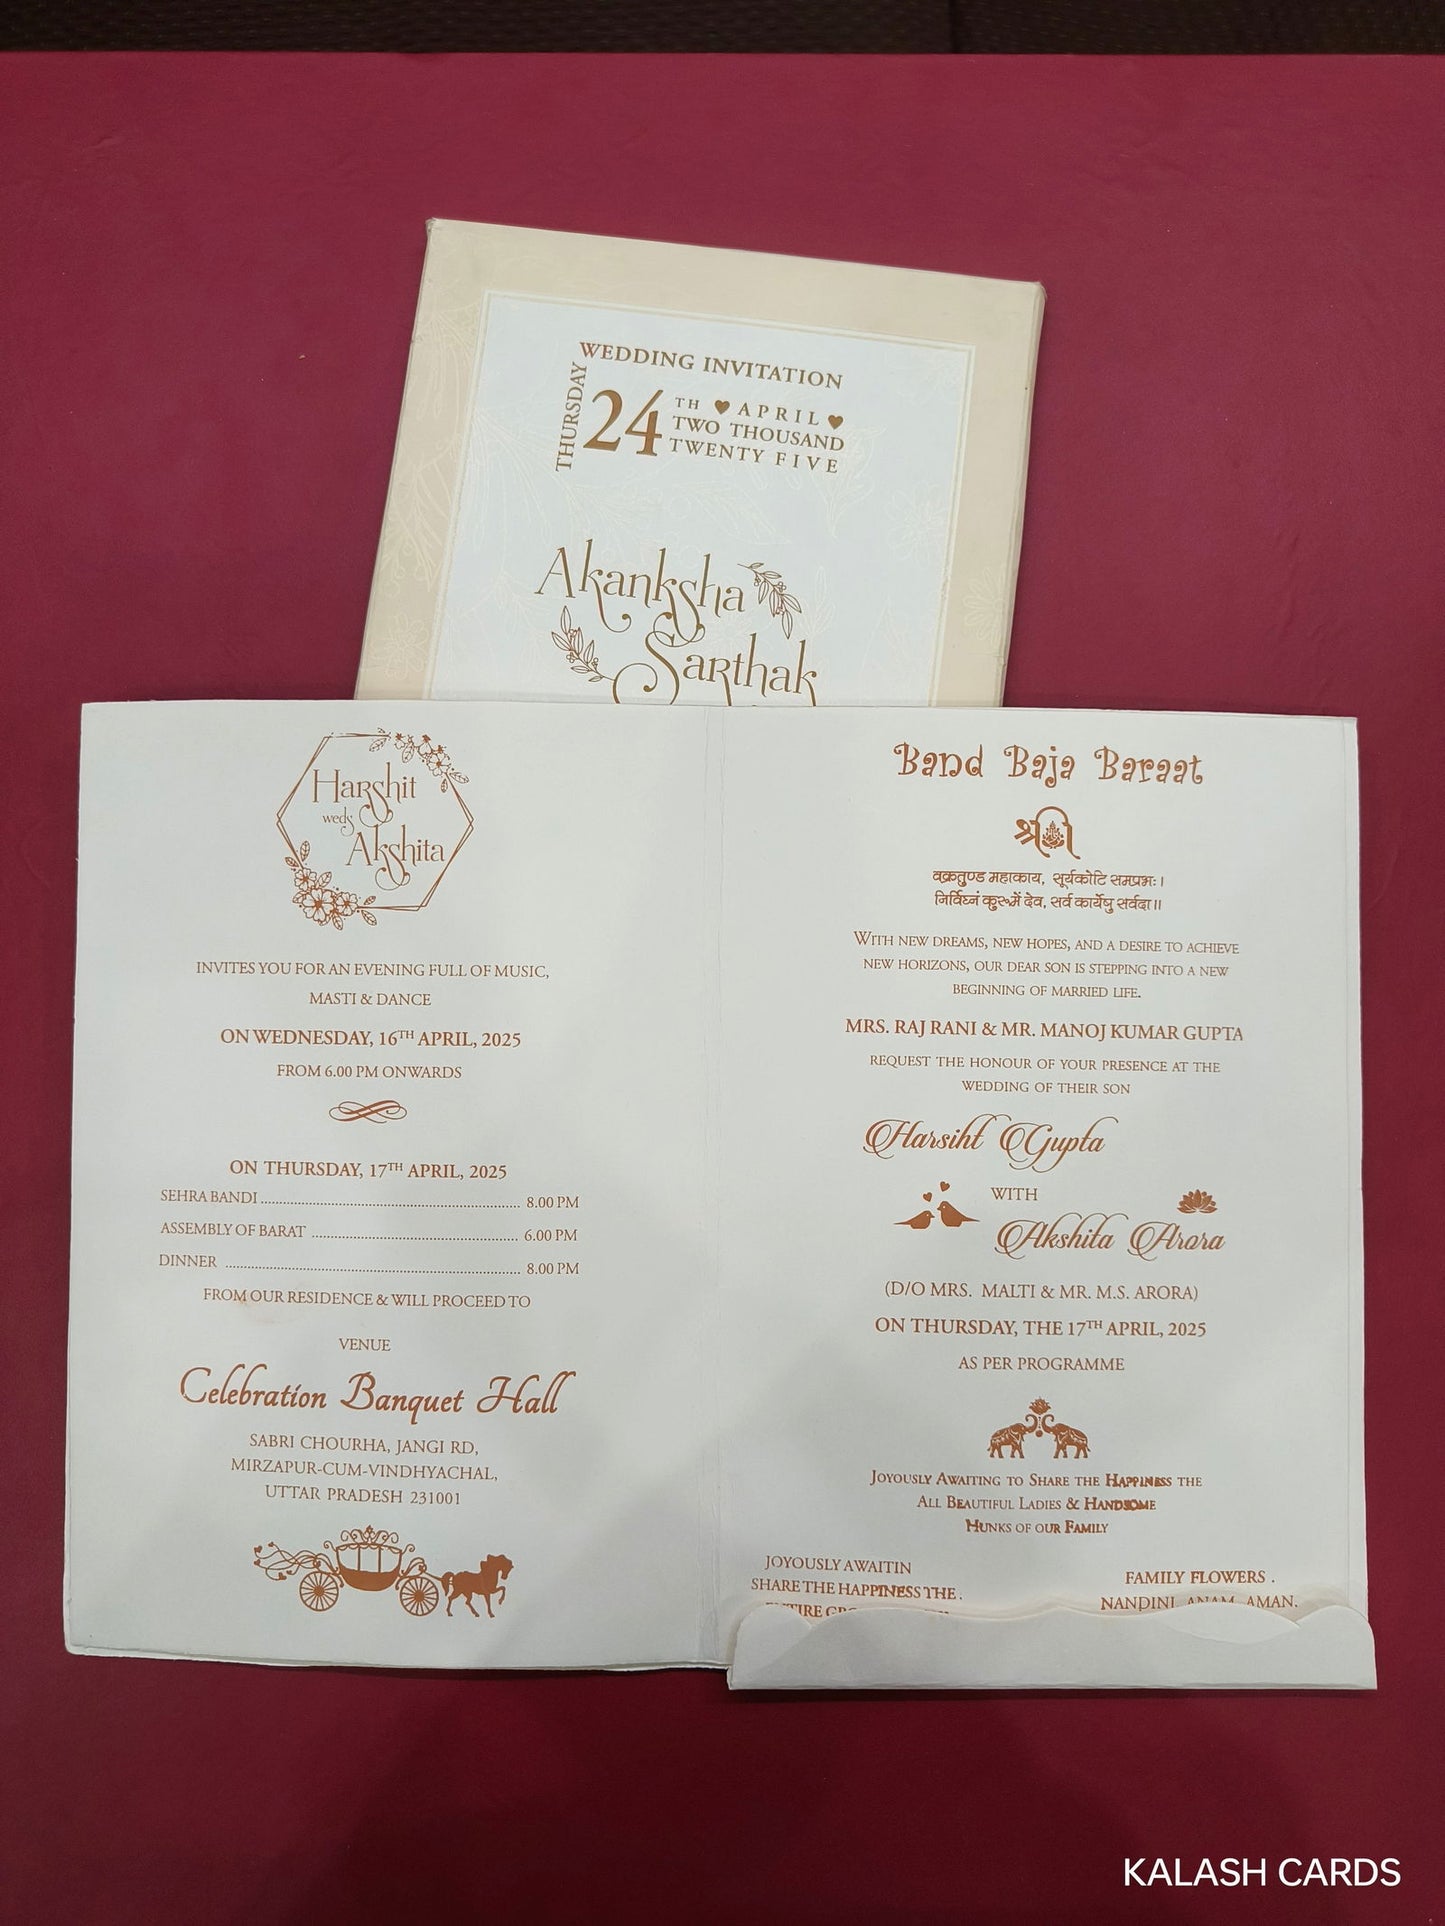 WEDDING INVITATION
THURSDAY
24TH APRIL
TWO THOUSAND
TWENTY FIVE
Akanksha
Sarthak
Harshit
weds
Akshita
INVITES YOU FOR AN EVENING FULL OF MUSIC,
MASTI & DANCE
ON WEDNESDAY, 16TH APRIL, 2025
FROM 6.00 PM ONWARDS
ON THURSDAY, 17TH APRIL, 2025
SEHRA BANDI ........................................ 8.00 PM
ASSEMBLY OF BARAT ........................................ 6.00 PM
DINNER ........................................ 8.00 PM
FROM OUR RESIDENCE & WILL PROCEED TO
VENUE
Celebration Banquet Hall
SABRI CHOURHA, JANGI RD,
MIRZAPUR-CUM-VINDHYACHAL,
UTTAR PRADESH 231001
Band Baja Baraat
श्री
वक्रतुण्ड महाकाय, सूर्यकोटि समप्रभः।
निर्विघ्नं कुरूमें देव, सर्व कार्येषु सर्वदा॥
WITH NEW DREAMS, NEW HOPES, AND A DESIRE TO ACHIEVE
NEW HORIZONS, OUR DEAR SON IS STEPPING INTO A NEW
BEGINNING OF MARRIED LIFE.
MRS. RAJ RANI & MR. MANOJ KUMAR GUPTA
REQUEST THE HONOUR OF YOUR PRESENCE AT THE
WEDDING OF THEIR SON
Harsiht Gupta
WITH
Akshita Arora
(D/O MRS. MALTI & MR. M.S. ARORA)
ON THURSDAY, THE 17TH APRIL, 2025
AS PER PROGRAMME
JOYOUSLY AWAITING TO SHARE THE HAPPINESS THE
ALL BEAUTIFUL LADIES & HANDSOME
HUNKS OF OUR FAMILY
JOYOUSLY AWAITIN
SHARE THE HAPPINESS THE.
FAMILY FLOWERS .
NANDINI, ANAM, AMAN,
KALASH CARDS